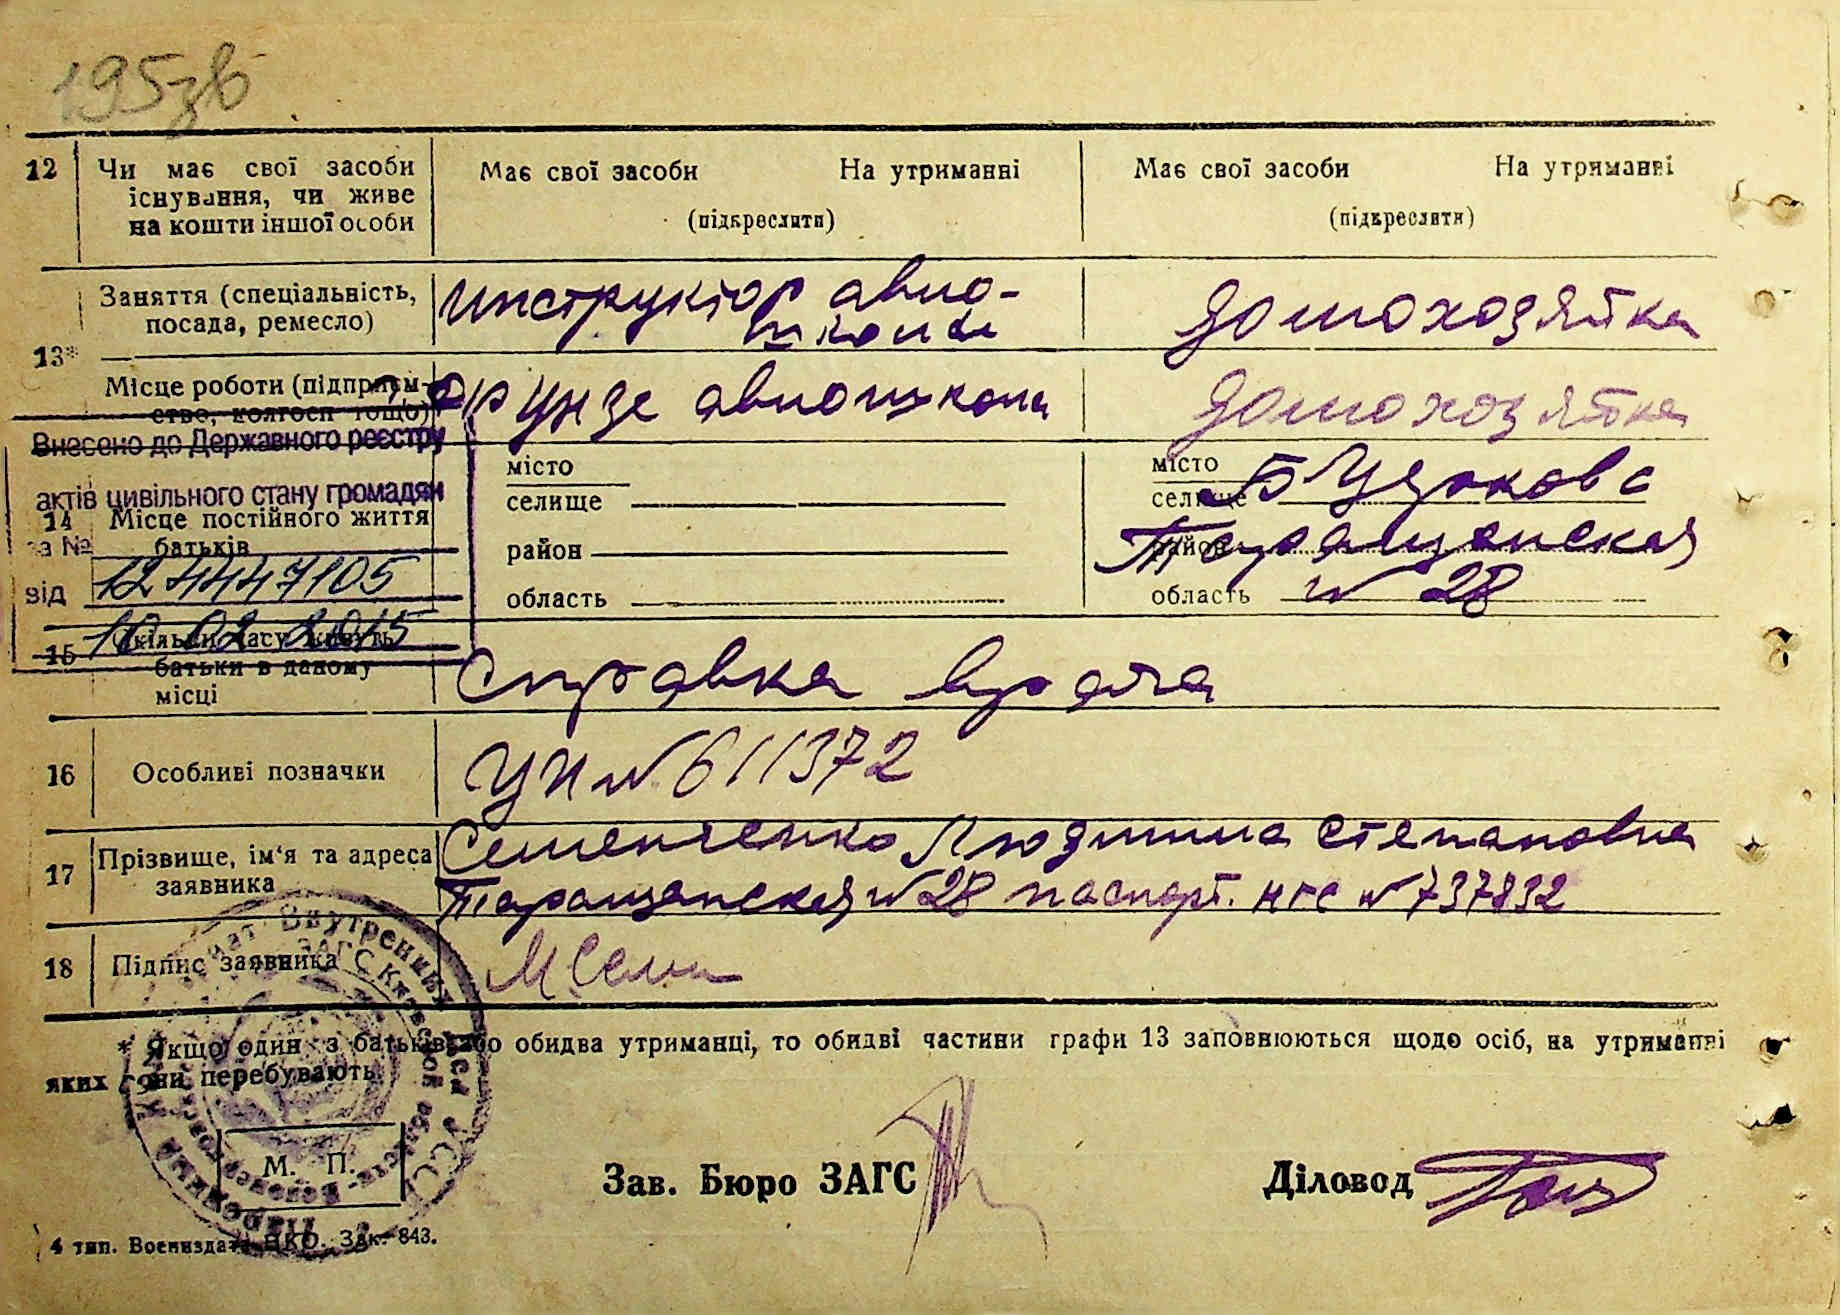 195зв
12 Чи має свої засоби існування, чи живе на кошти іншої особи
Має свої засоби На утриманні
(підкреслити)
Має свої засоби На утриманні
(підкреслити)
13*
Заняття (спеціальність, посада, ремесло)
Инструктор авио-
школы
Домохозяйка
Місце роботи (підприєм-
ство, колгосп тощо)
Фрунзе авиошкола
Домохозяйка
Внесено до Державного реєстру
актів цивільного стану громадян
за №
124447105
від
10 02 2015
14 Місце постійного життя
батьків
місто
селище
район
область
місто
селище
район
область
Таращанская
№ 28
15 Скільки часу живуть
батьки в даному
місці
Справка врача
16 Особливі позначки
УН № 611372
17 Прізвище, ім'я та адреса
заявника
Семенченко Людмила Степановна
Таращанская № 28 паспорт. НГС № 737832
18 Підпис заявника
* Якщо один з батьків або обидва утриманці, то обидві частини графи 13 заповнюються щодо осіб, на утриманні
яких вони перебувають.
М. П.
Зав. Бюро ЗАГС
Діловод
4 тип. Воениздата НКО. Зак. 843.